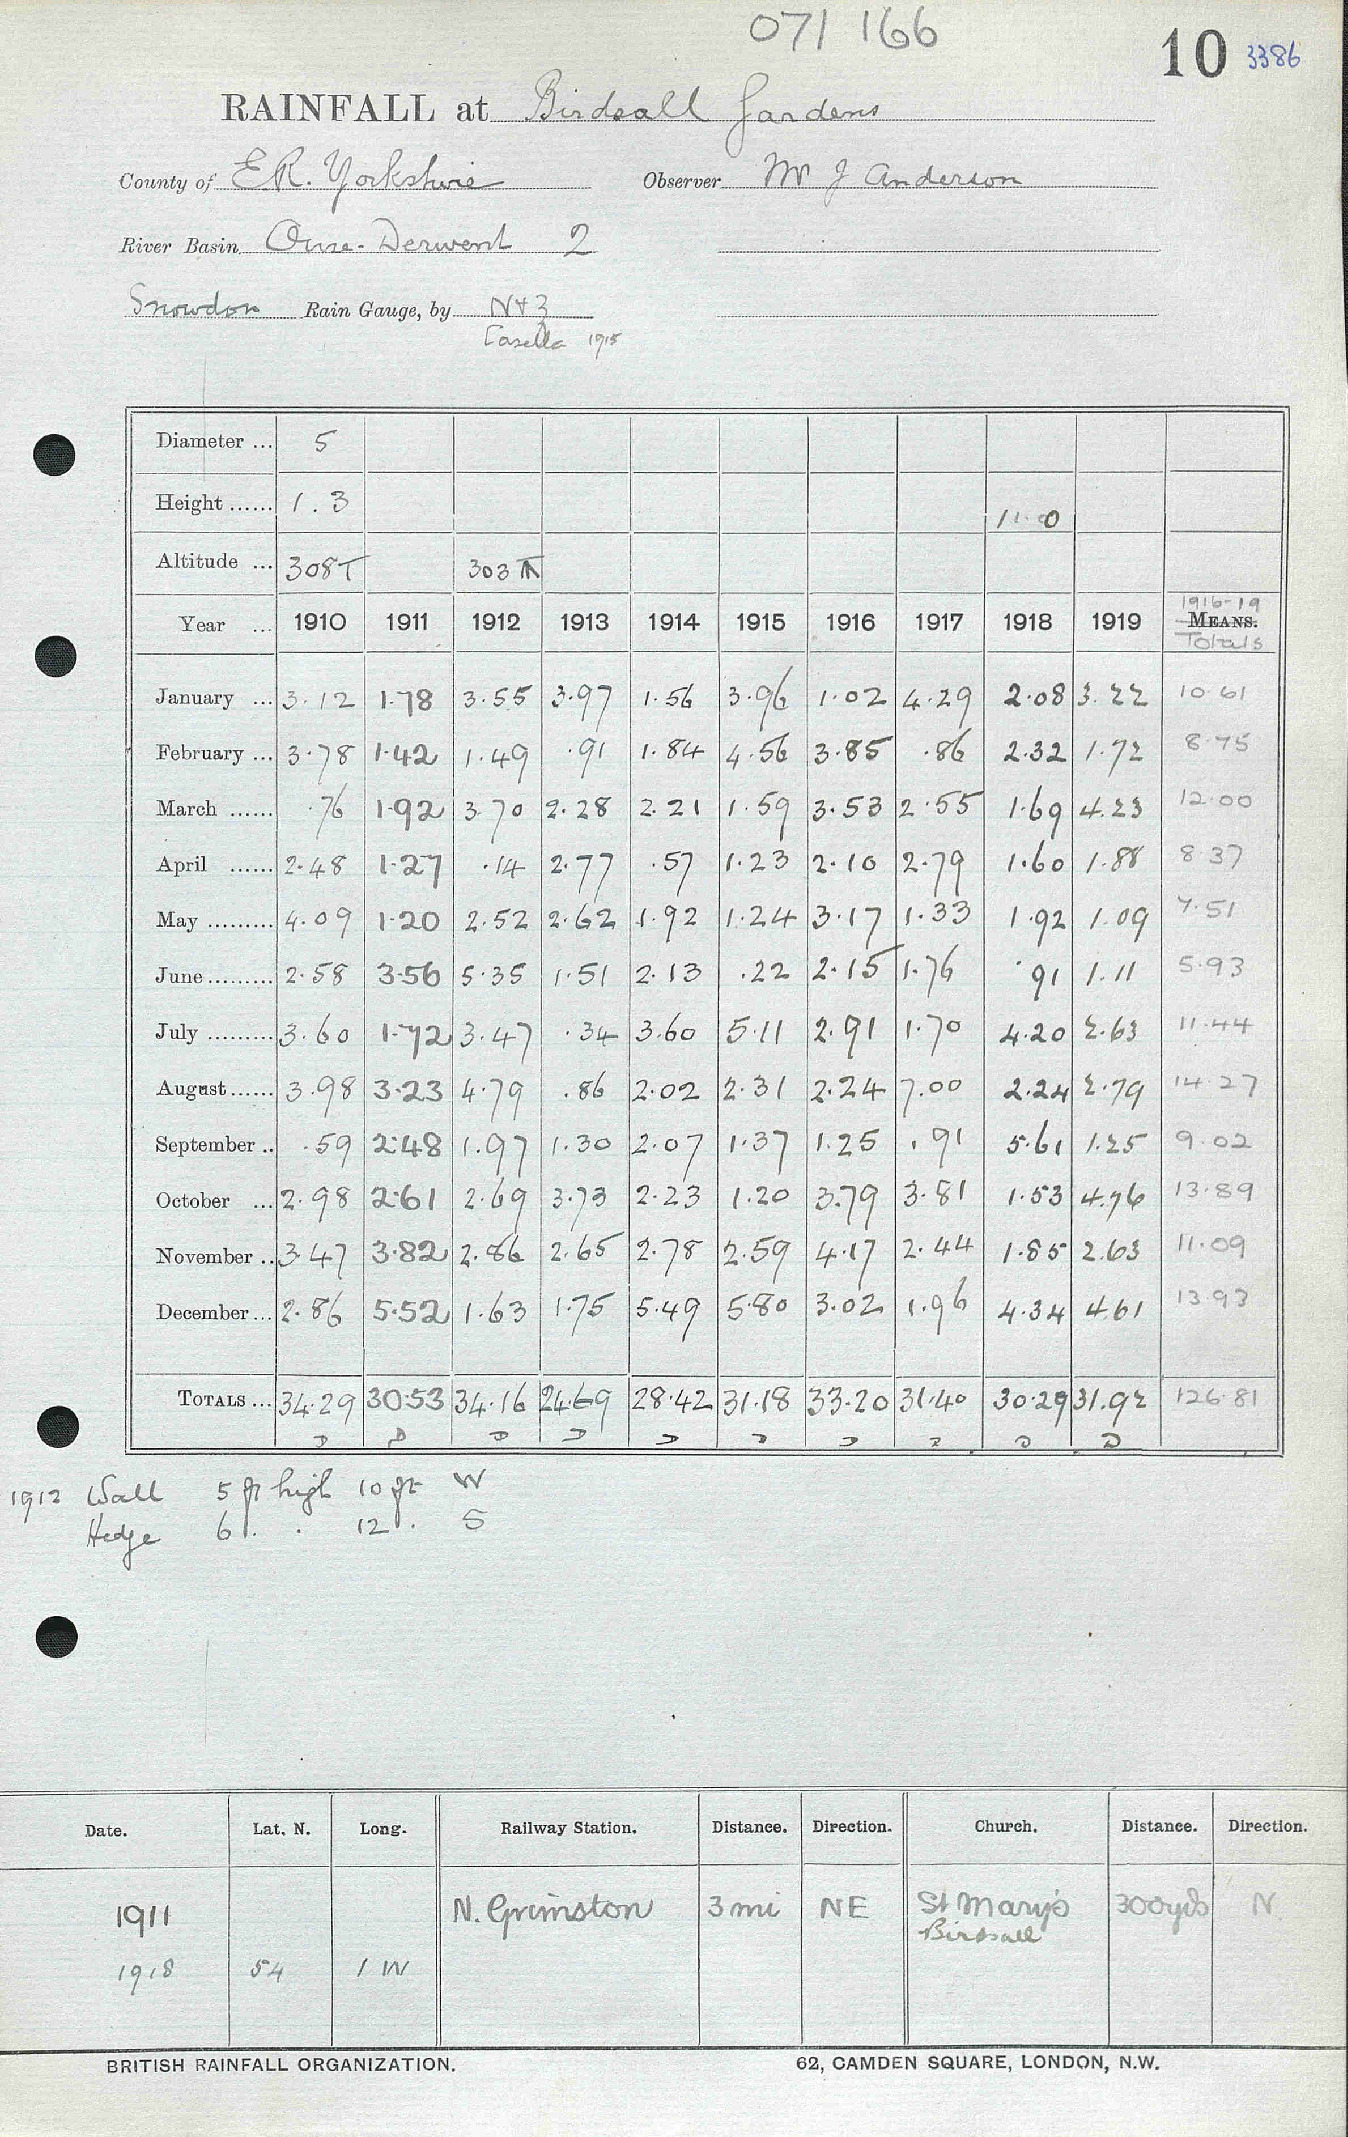 071 166
10 3386
RAINFALL at Birdsall Gardens
County of E.R. Yorkshire Observer Mr J Anderson
River Basin Ouse-Derwent 2
Snowdon Rain Gauge, by N+Z
Casella 1915
Diameter ... 5
Height ...... 1.3 11.0
Altitude ... 308T 303
Year ... 1910 1911 1912 1913 1914 1915 1916 1917 1918 1919 1916-19 MEANS. Totals
January ... 3.12 1.78 3.55 3.97 1.56 3.96 1.02 4.29 2.08 3.22 10.61
February ... 3.78 1.42 1.49 .91 1.84 4.56 3.85 .86 2.32 1.72 8.75
March ...... .76 1.92 3.70 2.28 2.21 1.59 3.53 2.55 1.69 4.23 12.00
April ...... 2.48 1.27 .14 2.77 .57 1.23 2.10 2.79 1.60 1.88 8.37
May ......... 4.09 1.20 2.52 2.62 1.92 1.24 3.17 1.33 1.92 1.09 7.51
June ......... 2.58 3.56 5.35 1.51 2.13 .22 2.15 1.76 .91 1.11 5.93
July ......... 3.60 1.72 3.47 .34 3.60 5.11 2.91 1.70 4.20 2.63 11.44
August ...... 3.98 3.23 4.79 .86 2.02 2.31 2.24 7.00 2.24 2.79 14.27
September .. .59 2.48 1.97 1.30 2.07 1.37 1.25 .91 5.61 1.25 9.02
October ... 2.98 2.61 2.69 3.73 2.23 1.20 3.79 3.81 1.53 4.76 13.89
November .. 3.47 3.82 2.86 2.65 2.78 2.59 4.17 2.44 1.85 2.63 11.09
December ... 2.86 5.52 1.63 1.75 5.49 5.80 3.02 1.96 4.34 4.61 13.93
TOTALS ... 34.29 30.53 34.16 24.69 28.42 31.18 33.20 31.40 30.29 31.92 126.81
D D D D D D D D D D
1912 Wall 5 ft high 10 ft W
Hedge 6 . . 12 . S
Date. Lat. N. Long. Railway Station. Distance. Direction. Church. Distance. Direction.
1911 N. Grimston 3 mi NE St Mary's 300yds N
Birdsall
1918 54 1 W
BRITISH RAINFALL ORGANIZATION. 62, CAMDEN SQUARE, LONDON, N.W.